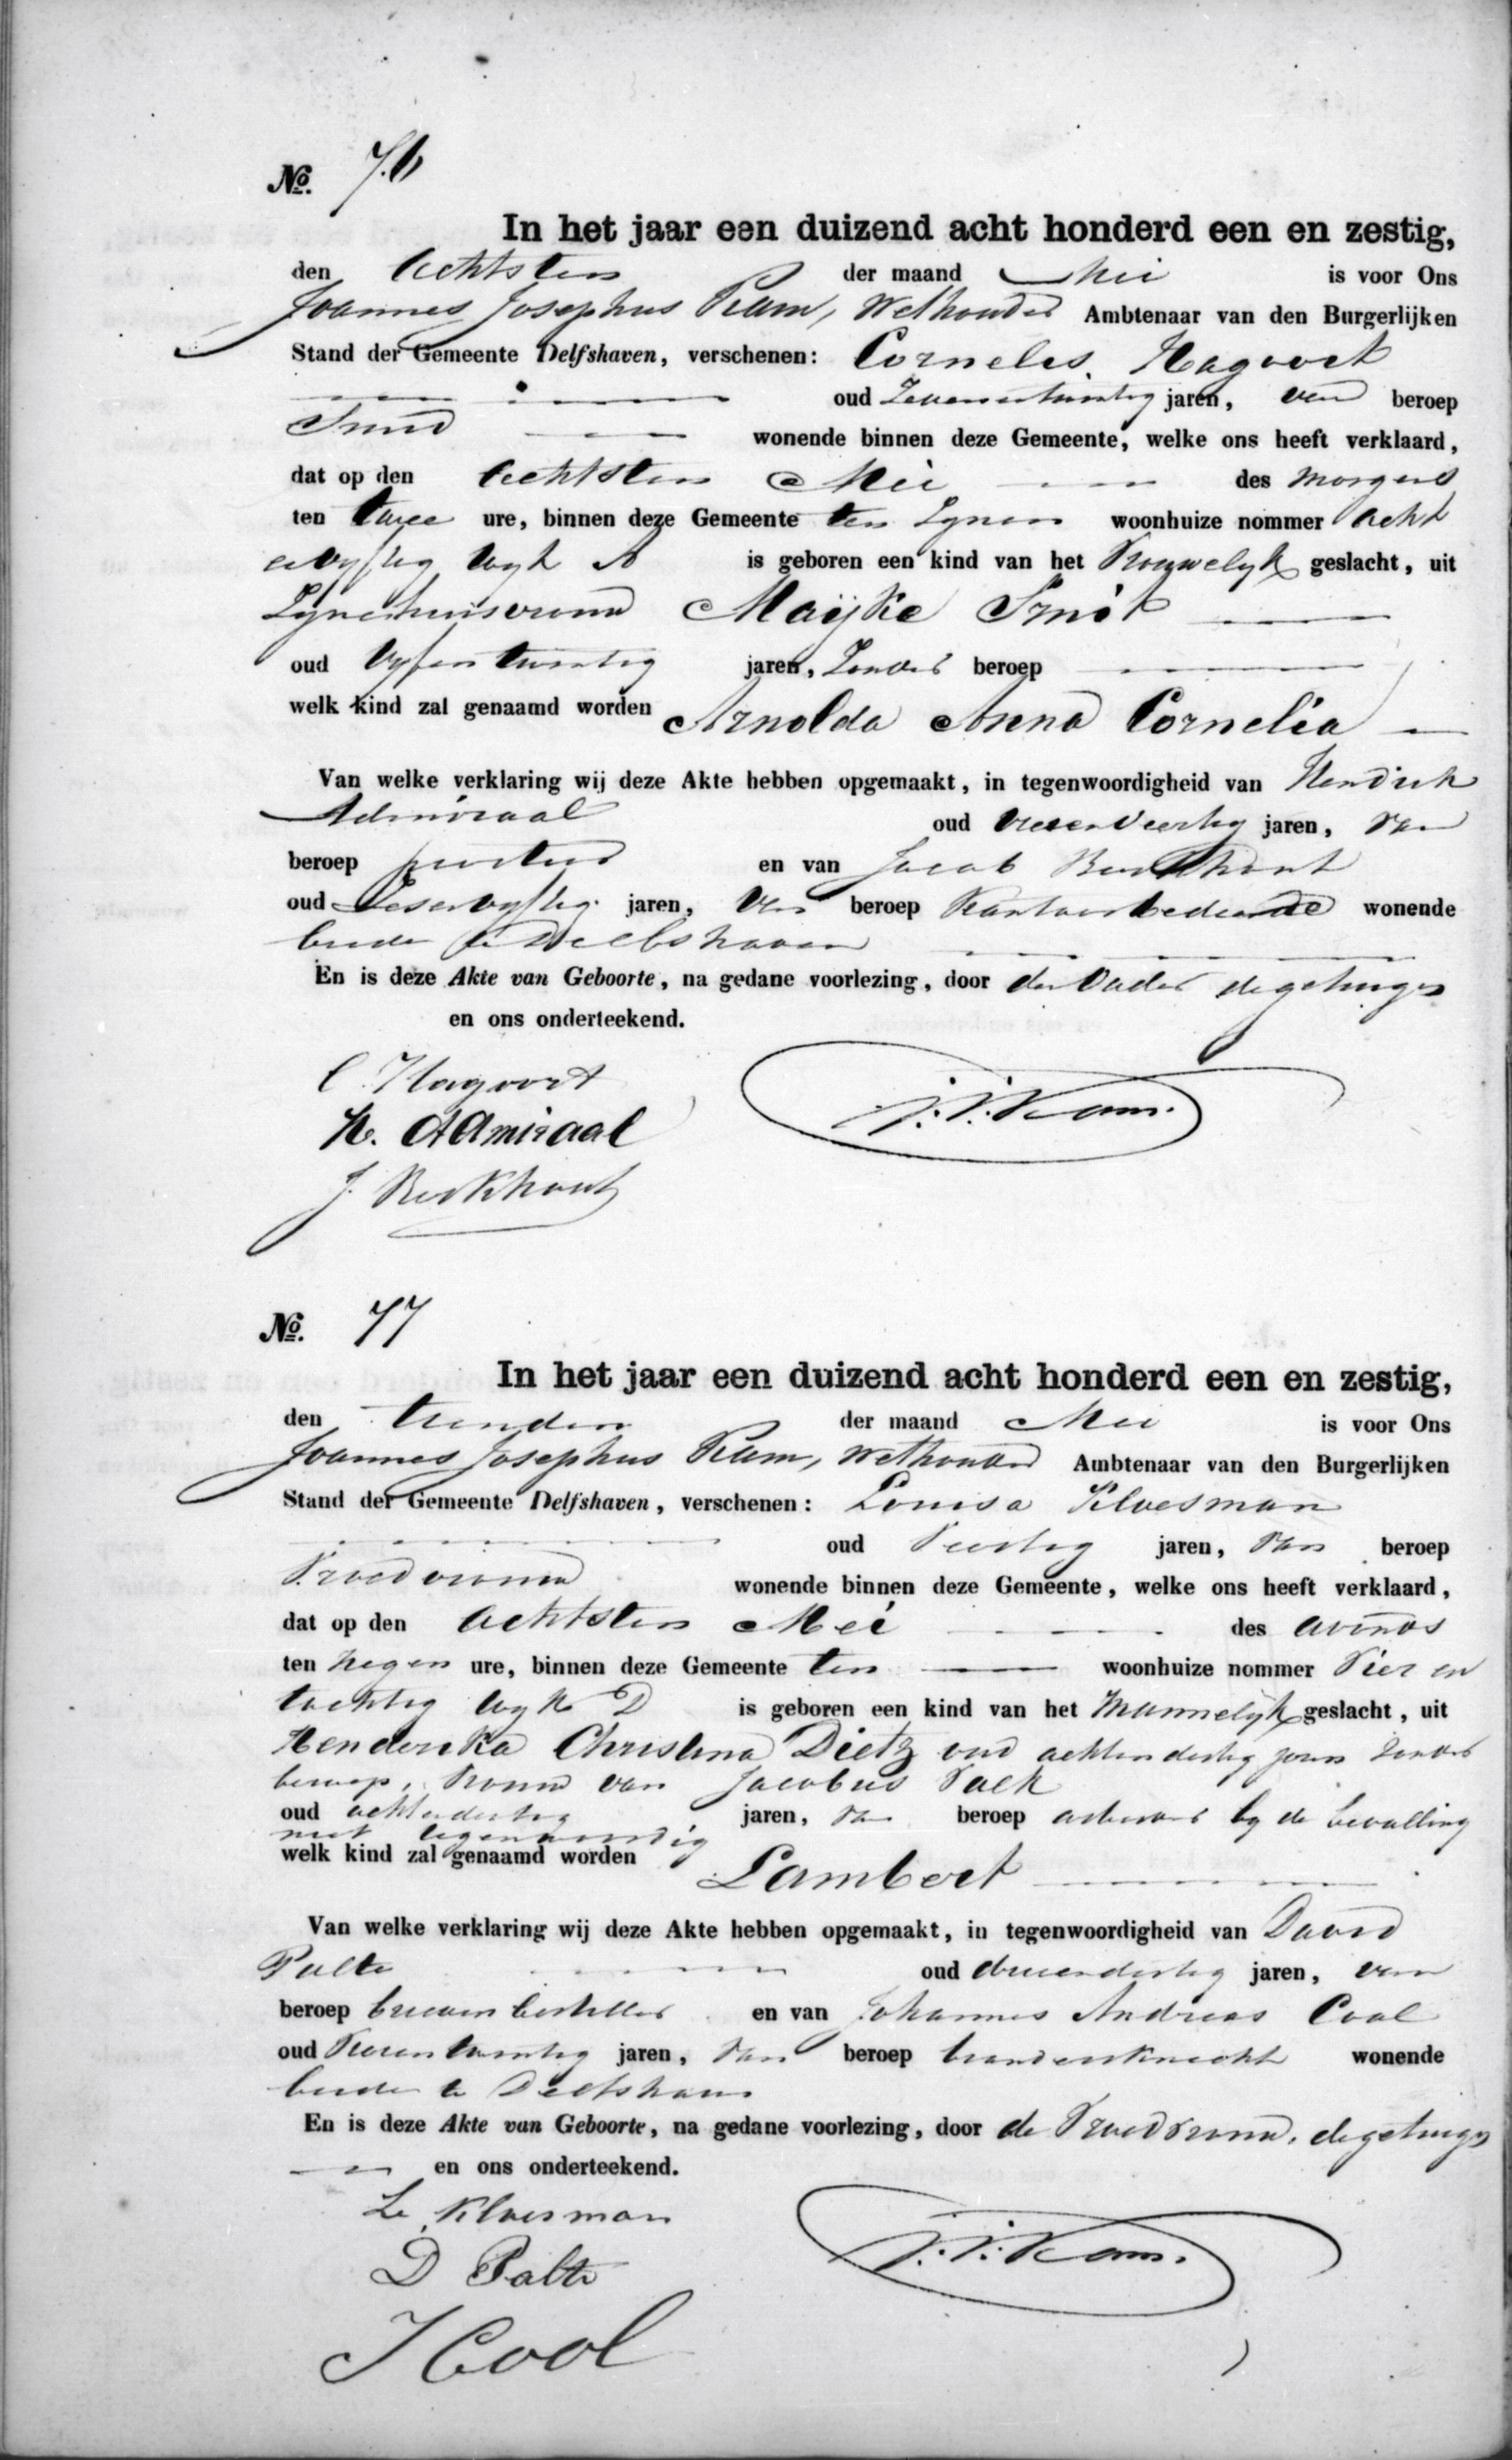 No. 76
In het jaar een duizend acht honderd een en zestig,
den achtsten der maand Mei is voor Ons
Joannes Josephus Kam, Wethouder Ambtenaar van den Burgerlijken
Stand der Gemeente Delfshaven, verschenen: Cornelis Hagoort
oud Zevenentwintig jaren, van beroep
Smid wonende binnen deze Gemeente, welke ons heeft verklaard,
dat op den achtsten Mei des morgens
ten twee ure, binnen deze Gemeente ten zynen woonhuize nommer acht
envyftig wyk A is geboren een kind van het Vrouwelyk geslacht, uit
Zyne huisvrouw Maijke Smit
oud vyfentwintig jaren, Zonder beroep
welk kind zal genaamd worden Arnolda Anna Cornelia
Van welke verklaring wij deze Akte hebben opgemaakt, in tegenwoordigheid van Hendrik
Admiraal oud vierenveertig jaren, van
beroep en van Jacob Berkhout
oud Zesenvyftig jaren, van beroep Kantoorbediende wonende
beide te Delfshaven
En is deze Akte van Geboorte, na gedane voorlezing, door den Vader de getuigen
en ons onderteekend.
C Hagoort
H. Admiraal
J. J. Kam.
J. Berkhout
No. 77
In het jaar een duizend acht honderd een en zestig,
den tienden der maand Mei is voor Ons
Joannes Josephus Kam, Wethouder Ambtenaar van den Burgerlijken
Stand der Gemeente Delfshaven, verschenen: Louisa Kloesman
oud Veertig jaren, van beroep
Vroedvrouw wonende binnen deze Gemeente, welke ons heeft verklaard,
dat op den achtsten Mei des avonds
ten negen ure, binnen deze Gemeente ten woonhuize nommer Vier en
tachtig wyk D is geboren een kind van het Mannelyk geslacht, uit
Henderika Christina Dietz oud achtendertig jaren zonder
beroep, vrouw van Jacobus Valk
oud achtendertig jaren, van beroep arbeider by de bevalling
niet tegenwoordig
welk kind zal genaamd worden Lambert
Van welke verklaring wij deze Akte hebben opgemaakt, in tegenwoordigheid van David
Palte oud drieendertig jaren, van
beroep brieven besteller en van Johannes Andreas Cool
oud Vierentwintig jaren, van beroep brandersknecht wonende
beide te Delfshaven
En is deze Akte van Geboorte, na gedane voorlezing, door de Vroedvrouw, de getuigen
en ons onderteekend.
L. Kloesman
D Palte
J. J. Kam.
J Cool